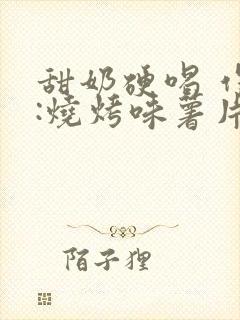 甜奶硬唱
:燒烤味薯片
陌子狸